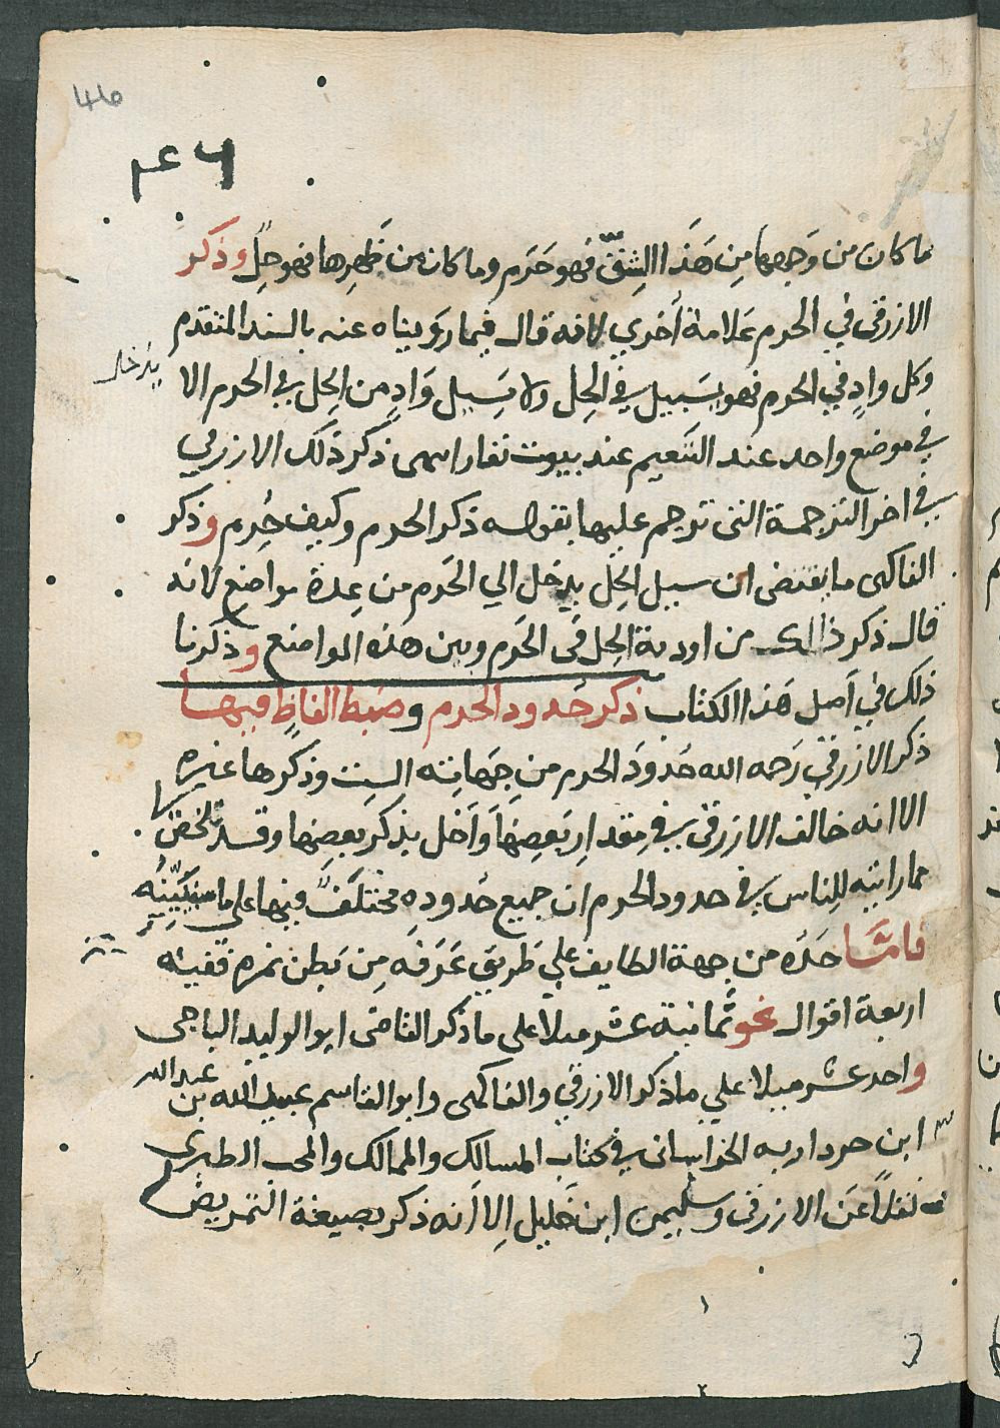 ٤٦
ما كان من وجهها من هَذَا الشِقّ فهو حَرَم وما كان من ظَهرِها فهو حِلٌ وذكر
الازرقى في الحرم عَلامة أخري لانه قال فيما رَوَيناه عنه بالسند المتقدم
وكل وادٍ في الحرم فهو يَسيل في الحِل ولا يَسِيل وَادٍ من الحِل في الحرم الا
يدخل
في موضع واحد عند التَنعيم عند بيوت نفار انتهى ذكر ذَلك الازرقي
في اخر الترجمة التى ترجم عليها بقوله ذكر الحرم وكيف حُرم وذكر
الفاكهى ما يقتضى ان سيل الحِل يدخل الي الحَرم من عِدة مواضع لانه
قال ذكر ذالك من اودية الحِل فى الحَرم وبين هذه المواضع وذكرنا
ذلك في اَصل هَذا الكتاب ذكر حُدود الحرم وضبط الفاظٍ فيها
ذكر الازرقي رَحمه الله حُدودَ الحرم من جِهَاتِه الست وذكرها غيره
الا انه خالف الازرقى في مِقدارِ بَعضِهَا وَاَخل بذِكر بعضِها وقد تلخص
مما رايته للناس في حدود الحرم ان جميع حُدودِهِ مختلَفٌ فيها على ما سَنُبَيّنُه
فامَّا حَدّه من جهة الطايف علي طَريق عَرَفه مِن بَطن نمره ففيه
اربعة اقوال نحو ثمانية عشر ميلا على ما ذكر القاضى ابو الوليد الباجى
واحد عشر ميلا علي ما ذكر الازرقي والفاكهى وابو القاسم عبيد الله بن
عبد الله
ابن خرداربه الخراسانى في كتاب المسالك والممالك والمحب الطبرى
نقلًا عَن الازرقى وسليمن ابن خَليل اِلا اَنه ذكر بصيغة التمريض